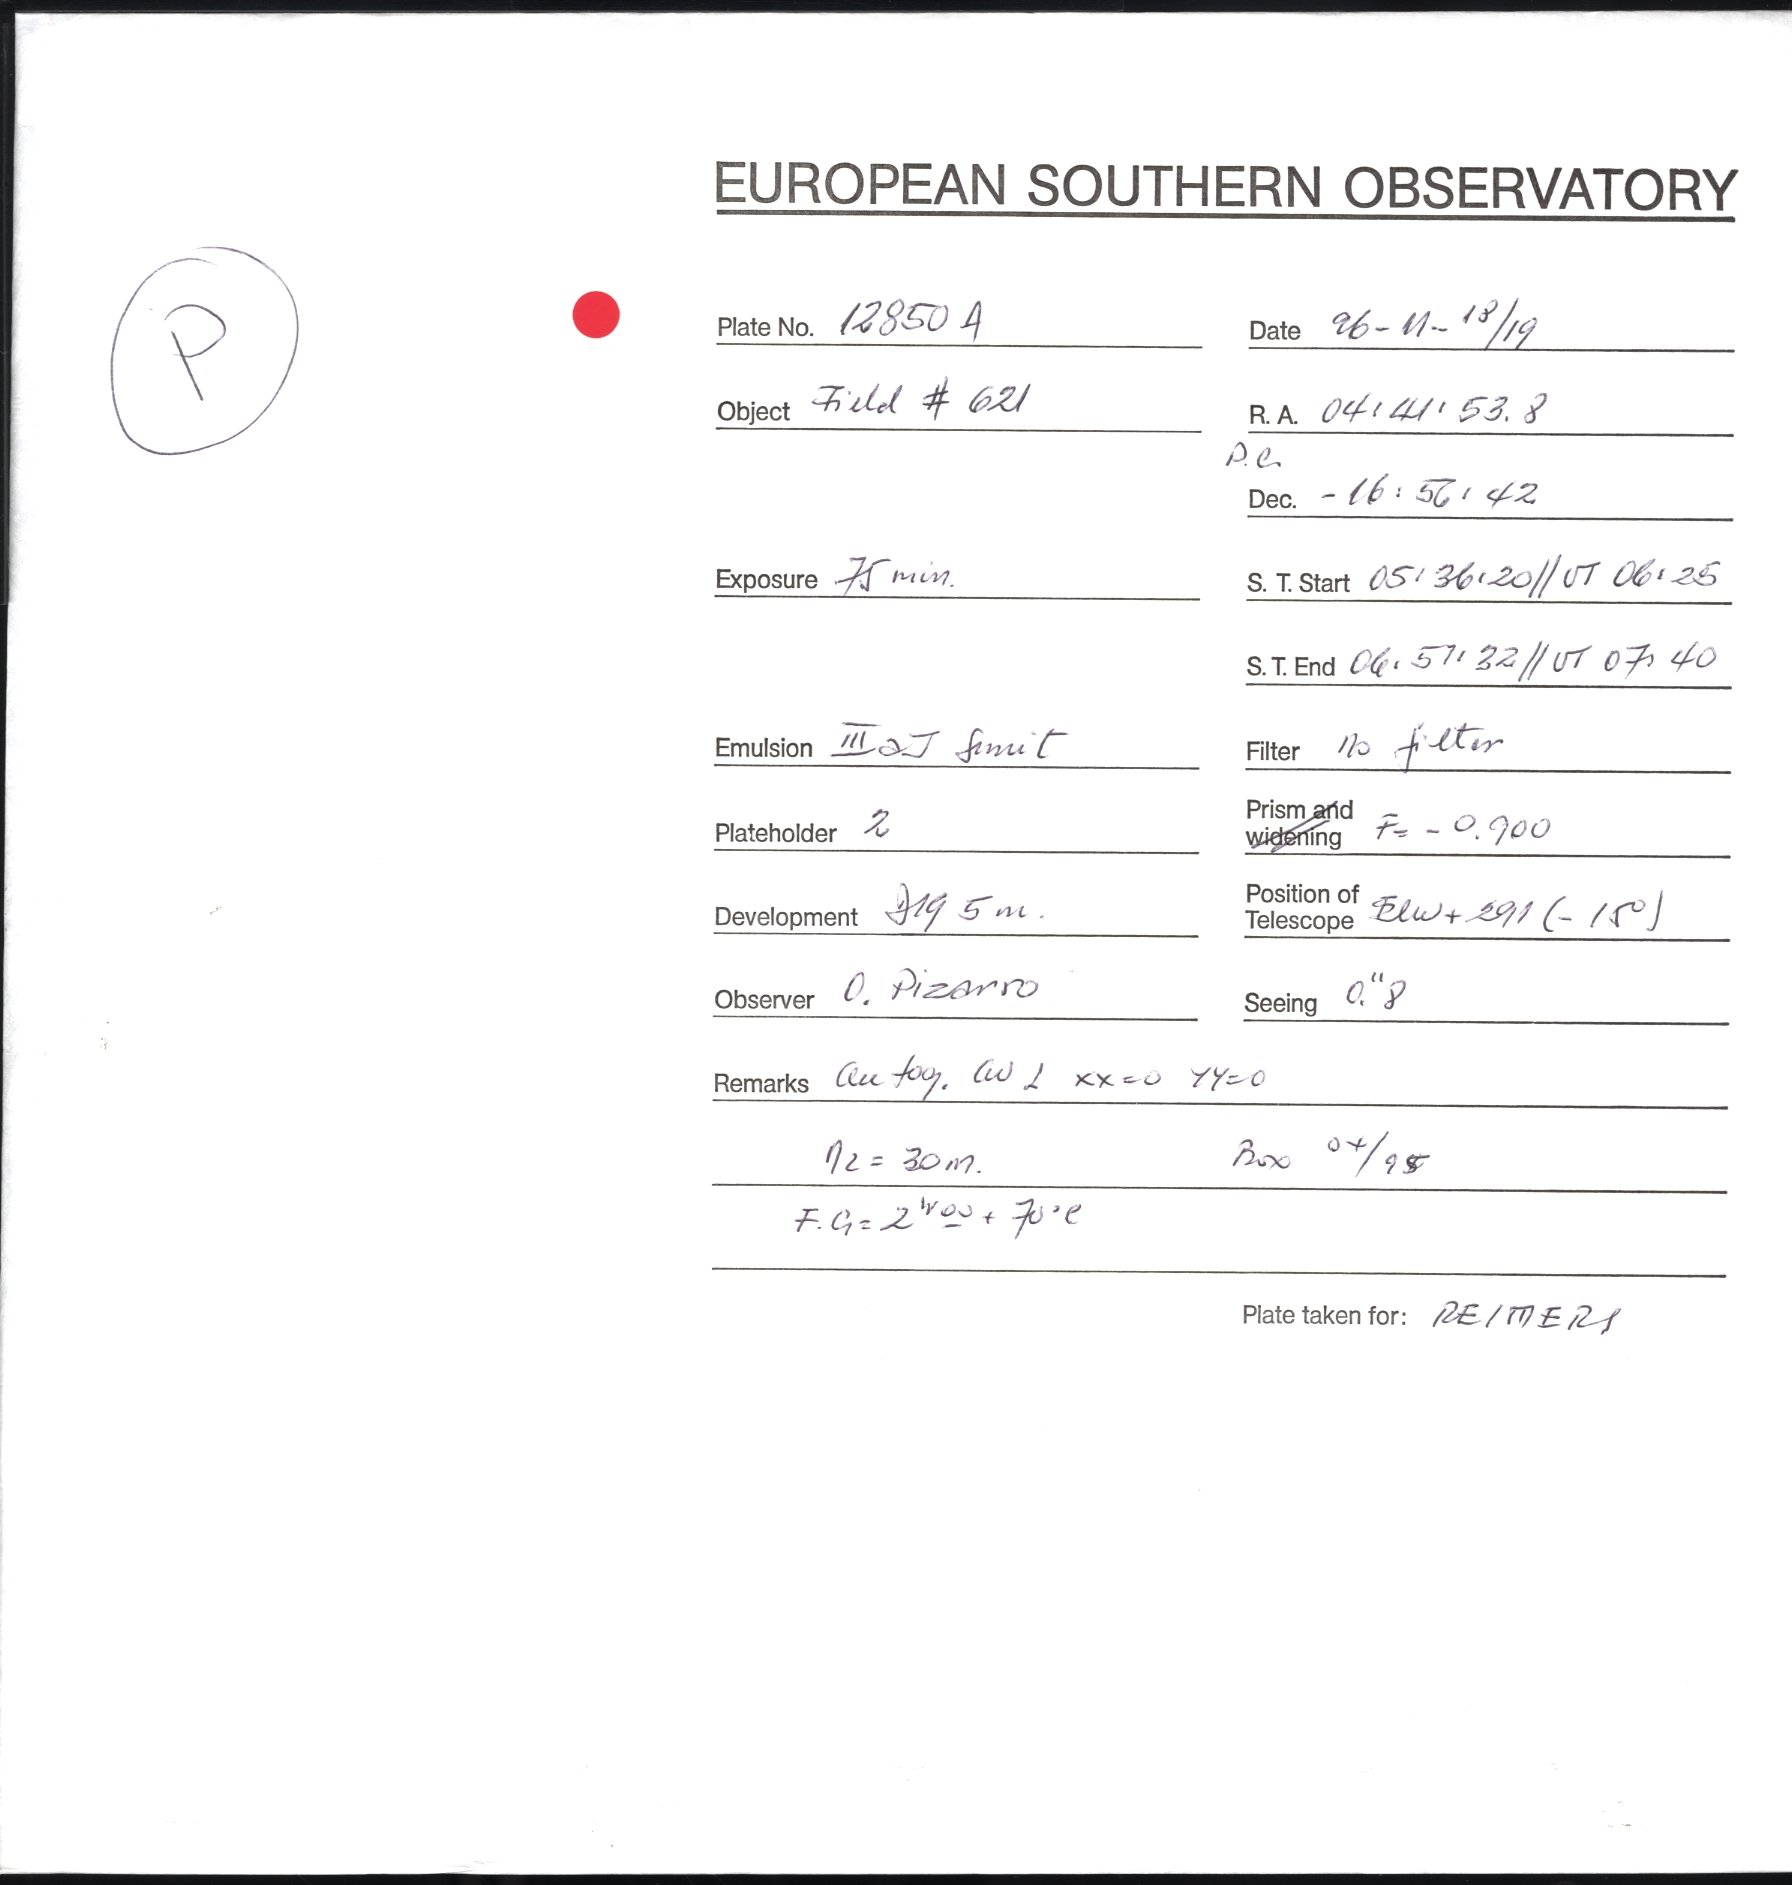 EUROPEAN SOUTHERN OBSERVATORY
P
Plate No. 12850 A
Date 96-11-18/19
Object Field # 621
R. A. 04:41:53.8
P.C.
Dec. -16:56:42
Exposure 75 min.
S. T. Start 05:36:20//UT 06:25
S. T. End 06:51:32//UT 07:40
Emulsion III aJ
Filter no filter
Plateholder 2
Prism and widening F= -0.900
Development D19 5 m.
Position of Telescope + 291 (-15°)
Observer O. Pizarro
Seeing 0."8
Remarks xx=0 YY=0
= 30 m. Box 04/95
F.G= 2 + 70
Plate taken for: REIMERS